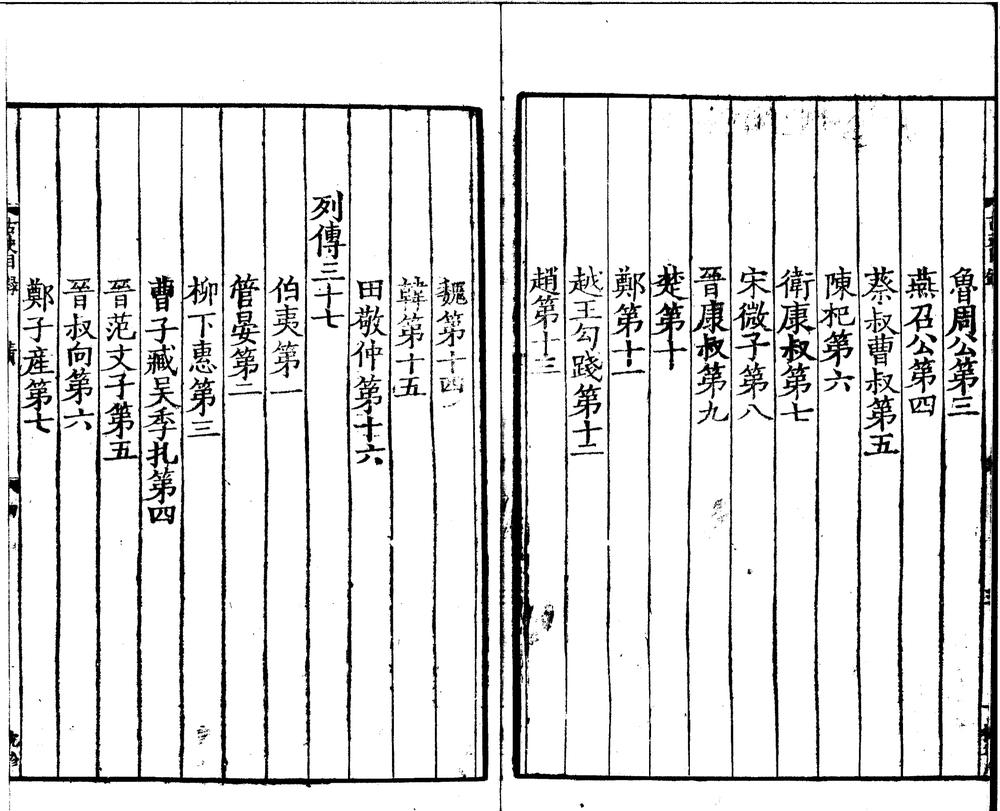 魯周公第三
燕召公第四
蔡叔曹叔第五
陳杞第六
衛康叔第七
宋微子第八
晉康叔第九
楚第十
鄭第十一
越王勾踐第十二
趙第十三
魏第十四
韓第十五
田敬仲第十六
列傳三十七
伯夷第一
管晏第二
柳下惠第三
曹子臧吴季扎第四
晉范文子第五
晉叔向第六
鄭子產第七